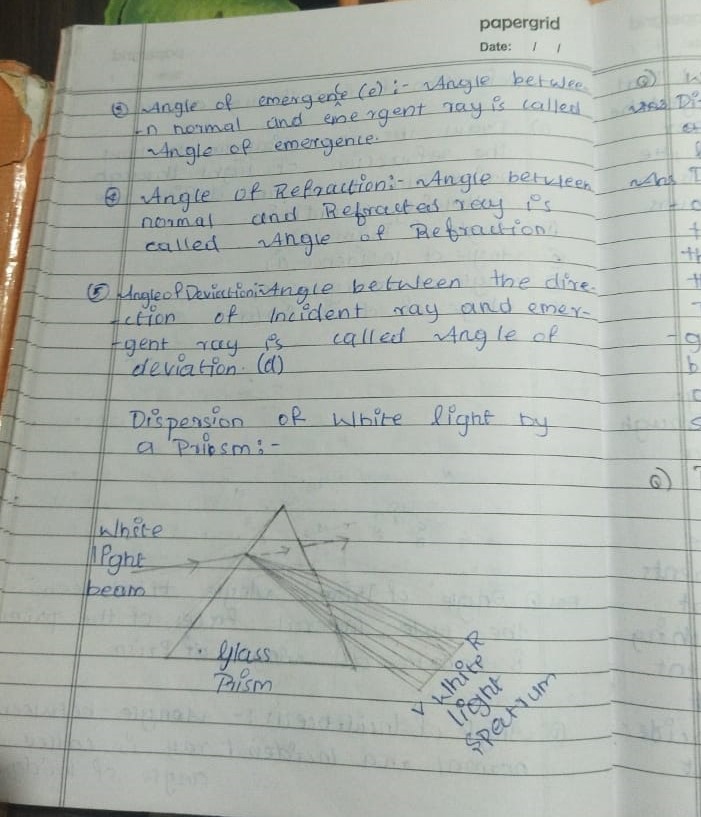 papergrid
Date: / /
③ Angle of emergence (e) :- Angle betwee
-n normal and emergent ray is called
Angle of emergence.
④ Angle of Refraction:- Angle between
normal and Refracted ray is
called Angle of Refraction
⑤ Angle of Deviation:- Angle between the dire-
-ction of Incident ray and emer-
-gent ray is called Angle of
deviation. (d)
Dispersion of White light by
a Prism :-
White
light
beam
Glass
Prism
R
V
White
light
Spectrum
Q)
Ans
Q)